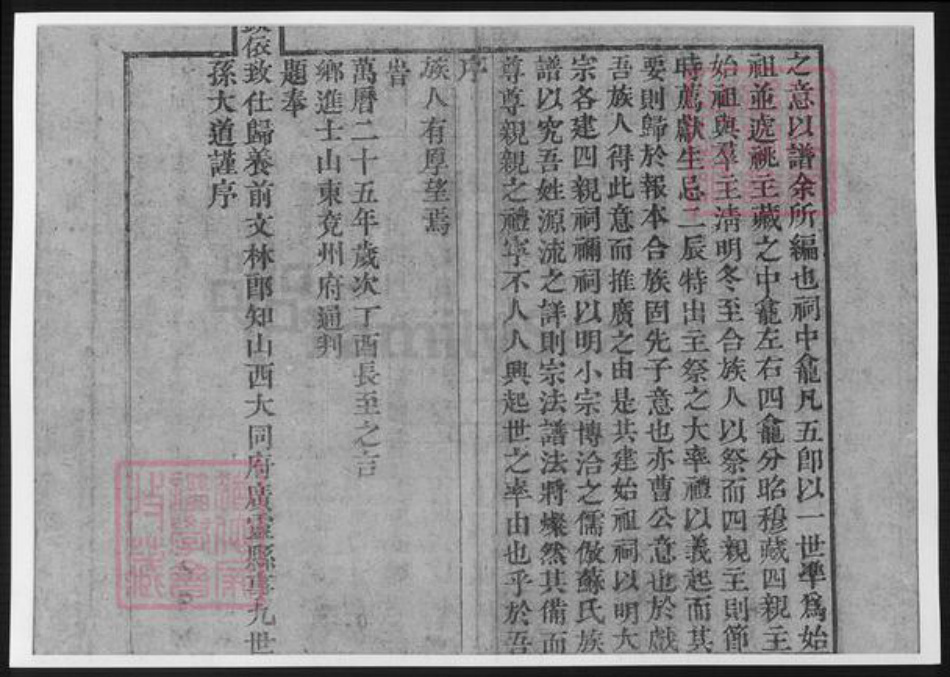 之意以譜余所編也祠中龕凡五卽以一世準爲始
祖並遞祧主藏之中龕左右四龕分昭穆藏四親主
始祖與羣主淸明冬至合族人以祭而四親主則節
時薦獻生忌二辰特出主祭之大率禮以義起而其
要則歸於報本合族固先子意也亦曹公意也於戲
吾族人得此意而推廣之由是共建始祖祠以明大
宗各建四親祠禰祠以明小宗博洽之儒倣蘇氏族
譜以究吾姓源流之詳則宗法譜法將燦然其備而
尊尊親親之禮寧不人人興起世之率由也乎於吾
族人有厚望焉
序
旹
萬曆二十五年歲次丁酉長至之吉
鄉進士山東兗州府通判
題奉
欽依致仕歸養前文林郎知山西大同府廣靈縣事九世
孫大道謹序